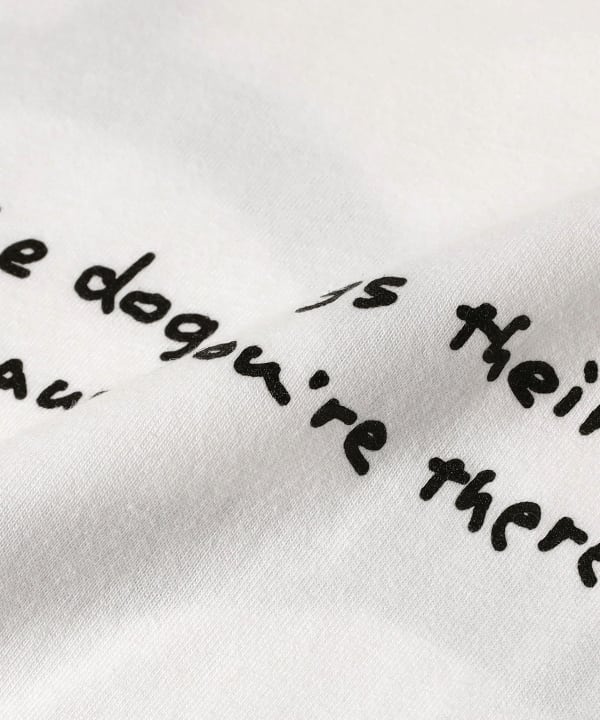 e dog s their
au ou're there